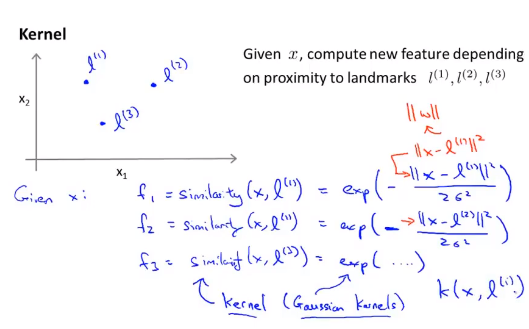 Kernel
Given x, compute new feature depending
on proximity to landmarks l^(1), l^(2), l^(3)
l^(1)
l^(2)
l^(3)
x₂
x₁
||w||
||x - l^(1)||²
Given x: f₁ = similarity(x, l^(1)) = exp(- ||x - l^(1)||² / 2σ²)
f₂ = similarity(x, l^(1)) = exp(- ||x - l^(2)||² / 2σ²)
f₃ = similarity(x, l^(3)) = exp( .... )
kernel (Gaussian kernels) k(x, l^(i))